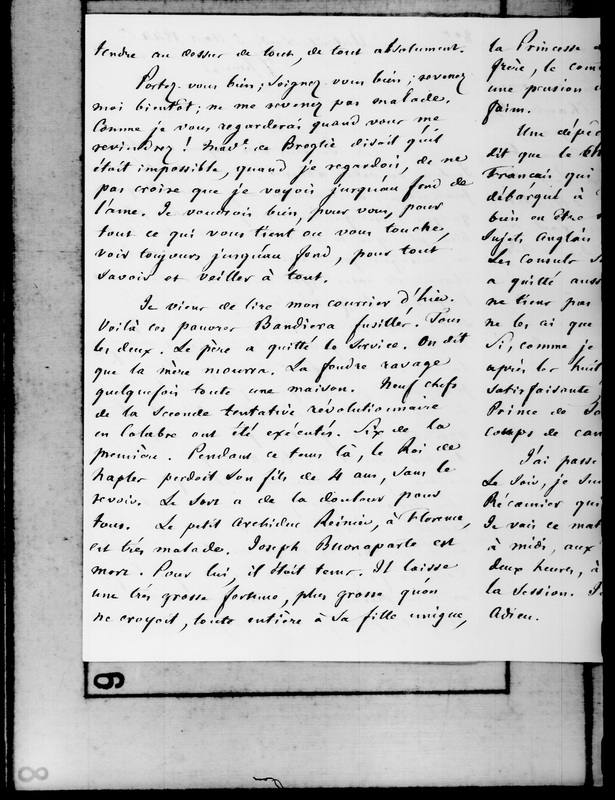 tendre au dessus de tout, de tout absolument.
Portez-vous bien; soignez-vous bien; revenez
moi bientôt; ne me revenez pas malade.
Comme je vous regarderai quand vous me
reviendrez! Made de Broglie disait qu'il
était impossible, quand je regardois, de ne
pas croire que je voyois jusqu'au fond de
l'âme. Je voudrois bien, pour vous, pour
tout ce qui vous tient ou vous touche,
voir toujours jusqu'au fond, pour tout
savoir et veiller à tout.
Je viens de lire mon courrier d'hier.
Voilà ces pauvres Bandiera fusillés. Tous
les deux. Le père a quitté le service. On dit
que la mère mourra. La foudre ravage
quelquefois toute une maison. Neuf chefs
de la seconde tentative révolutionnaire
en Calabre ont été exécutés. Six de la
première. Pendant ce tems là, le Roi de
Naples perdoit son fils de 4 ans, sans le
revoir. Le sort a de la douleur pour
tous. Le petit Archiduc Reinier, à Florence,
est très malade. Joseph Buonaparte est
mort. Pour lui, il était tems. Il laisse
une très grosse fortune, plus grosse qu'on
ne croyoit, toute entière à sa fille unique,
la Princesse
frère, le
une pension
faim.
Une dépêc
dit que le
Français qui
débarqué à
bien en être
Sujets Anglais
Les Consuls
a quitté auss
ne tient pas
ne les ai que
Si, comme je
après les huit
satisfaisante
Prince de
camps de can
J'ai passé
Le soir, je sui
Récamier qui
Je vais ce mat
à midi, aux
deux heures, à
la session.
Adieu.
6
8